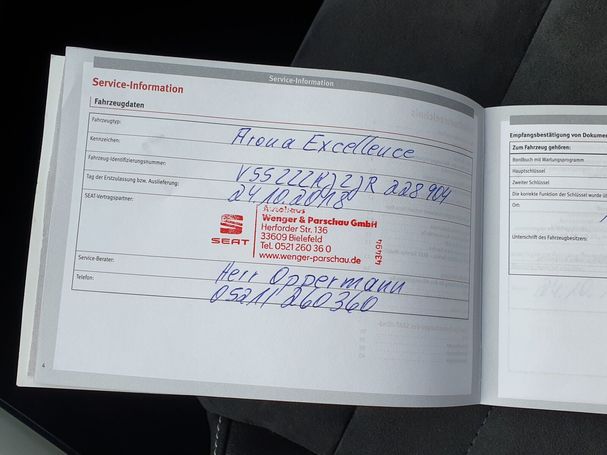 Service-Information
Service-Information
Fahrzeugdaten
Fahrzeugtyp:
Arona Excellence
Kennzeichen:
Fahrzeug-Identifizierungsnummer:
VSSZZZKJZJR 228904
Tag der Erstzulassung bzw. Auslieferung:
24.10.2018
SEAT-Vertragspartner:
SEAT
Autohaus
Wenger & Parschau GmbH
Herforder Str. 136
33609 Bielefeld
Tel. 0521 260 36 0
www.wenger-parschau.de
43494
Service-Berater:
Herr Oppermann
Telefon:
05211 260360
4
Empfangsbestätigung von Dokume
Zum Fahrzeug gehören:
Bordbuch mit Wartungsprogramm
Hauptschlüssel
Zweiter Schlüssel
Die korrekte Funktion der Schlüssel wurde ü
Ort:
Unterschrift des Fahrzeugbesitzers: